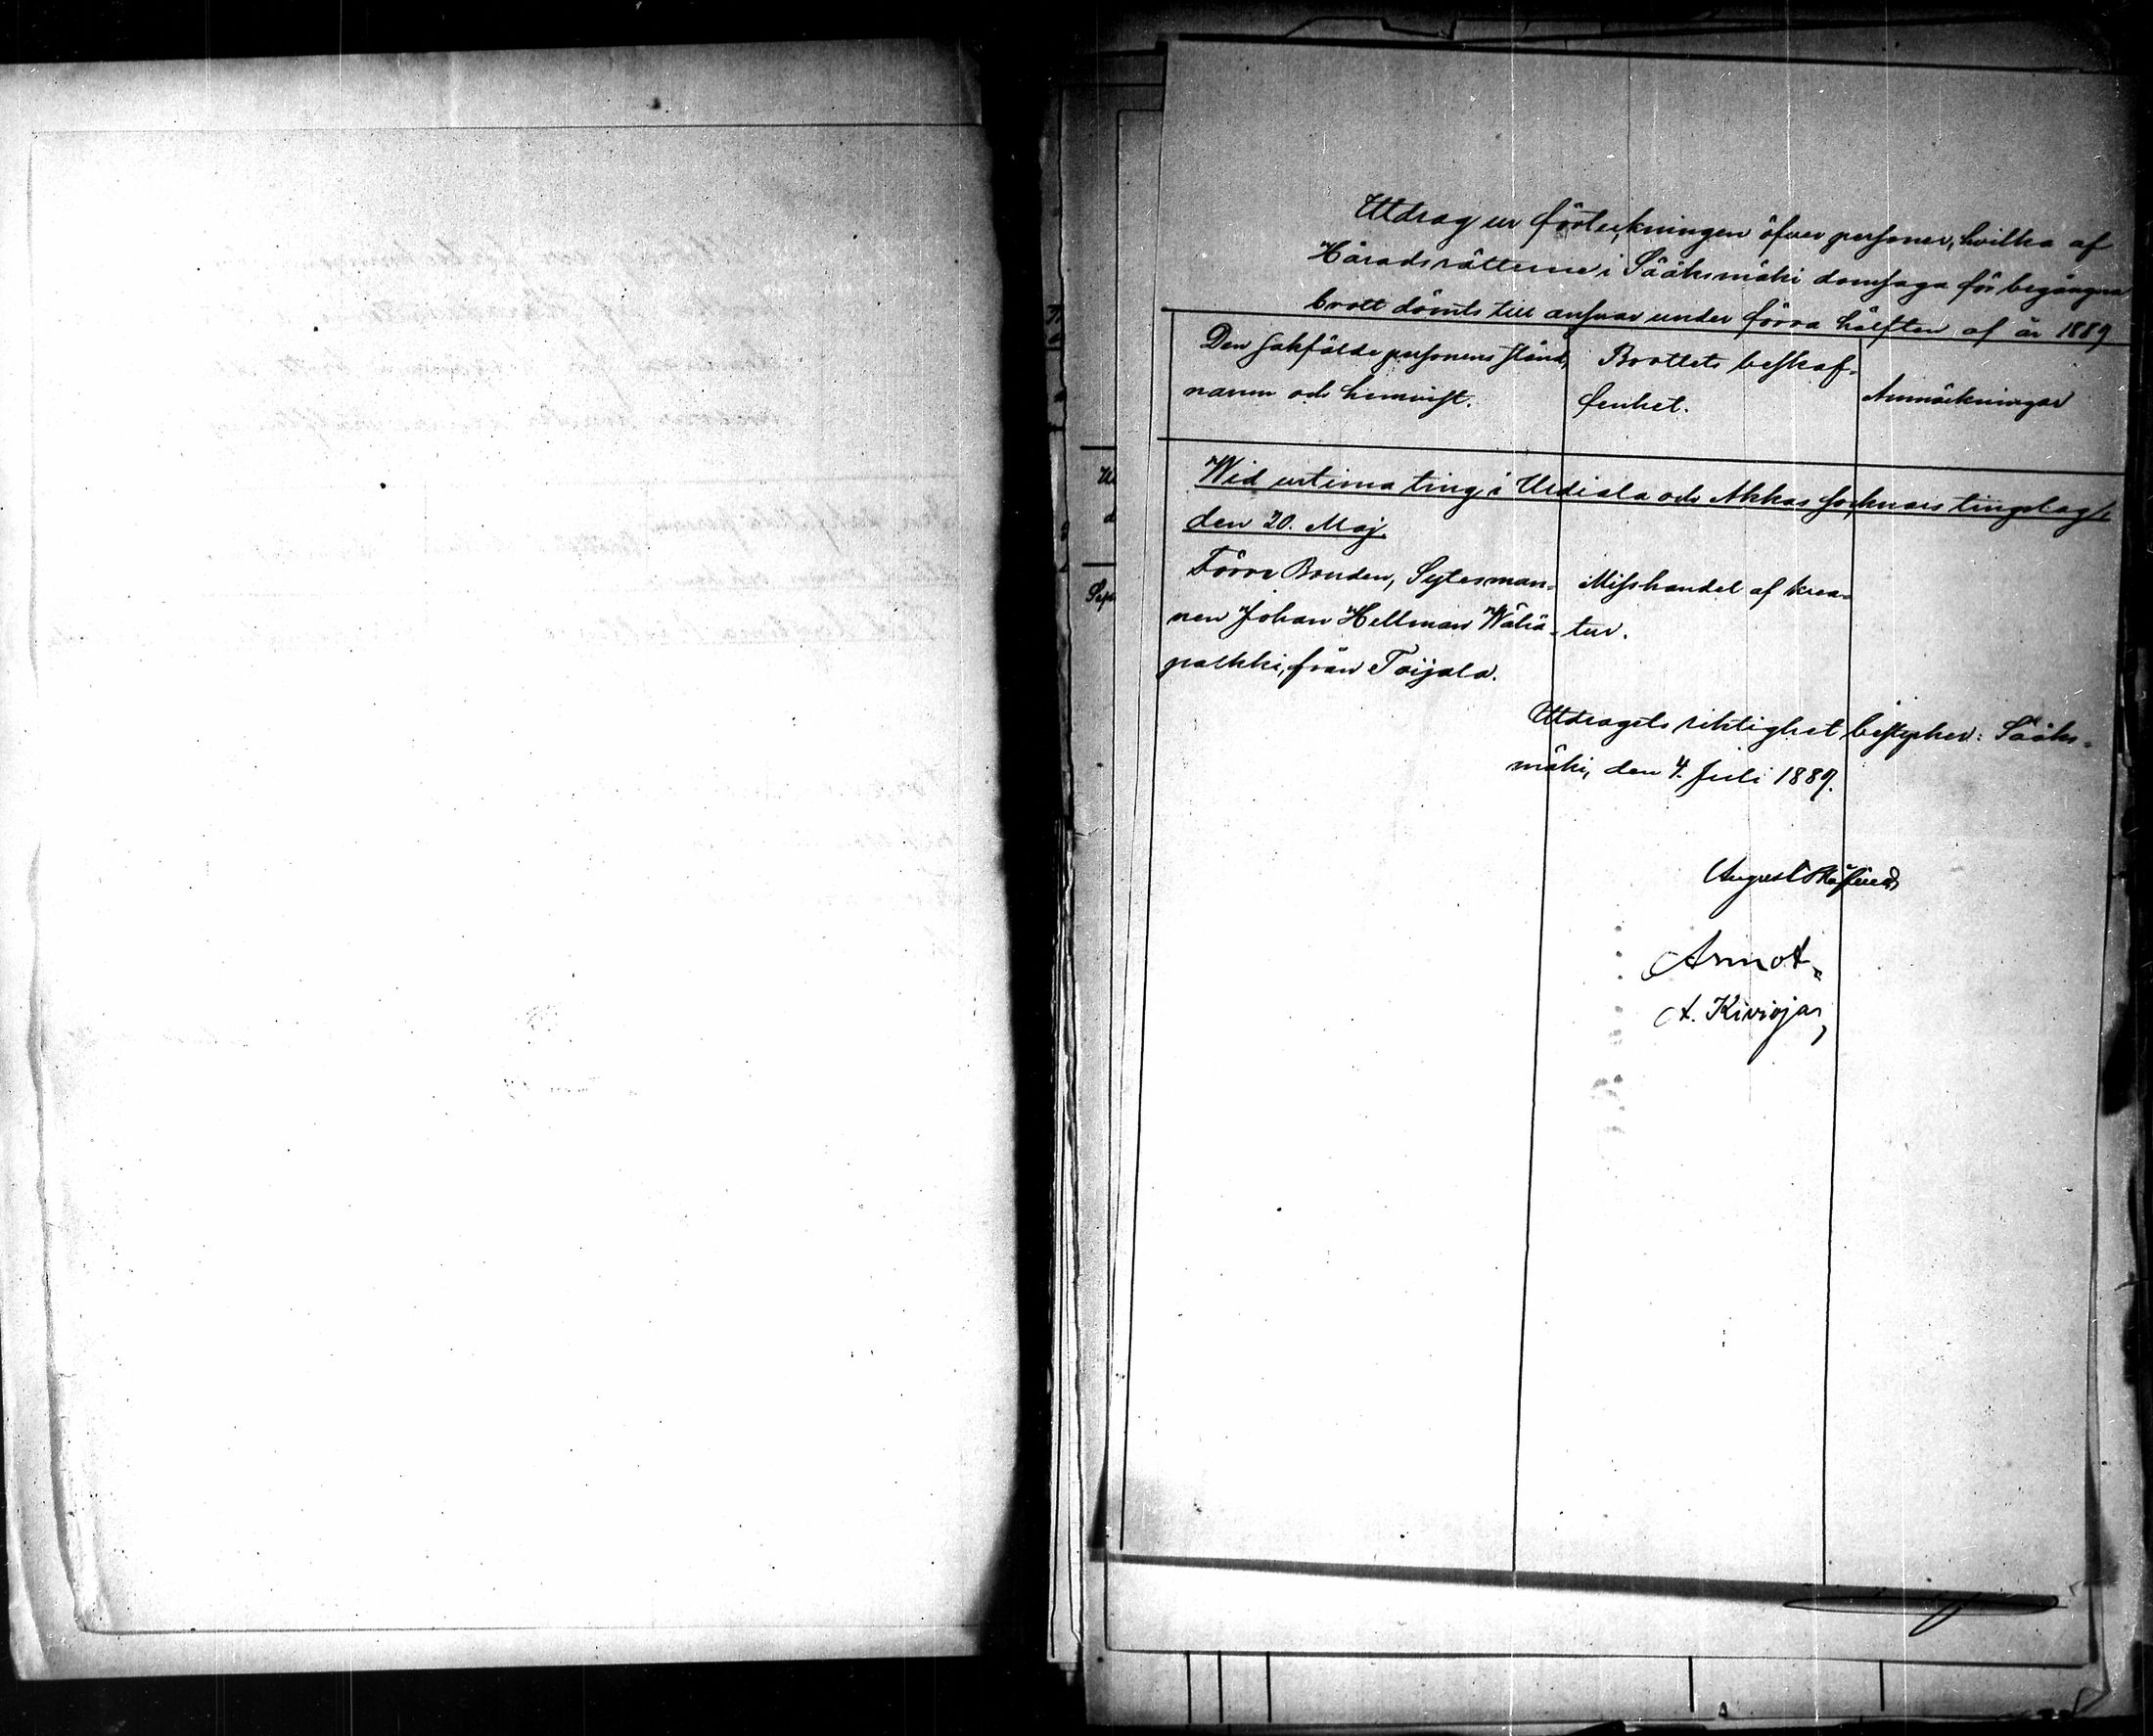 Utdrag ur förteckningen öfver personer, hvilka af
Häradsrätterne i Sääksmäki domsaga för begångna
brott dömts till ansvar under förra hälften af år 1889
Den sakfälde personens stånd,
namn och hemvist.
Brottets beskaf-
fenhet.
Anmärkningar
Wid urtima ting i Urdiala och Akkas socknars tingslag
den 20. Maj.
Förre Bonden, Sytesman-
nen Johan Hellman Wähä-
palkki, från Toijala.
Misshandel af krea-
tur.
Utdragets riktighet bestyrker: Sääks-
mäki, den 4. Juli 1889.
August
A. Kivioja